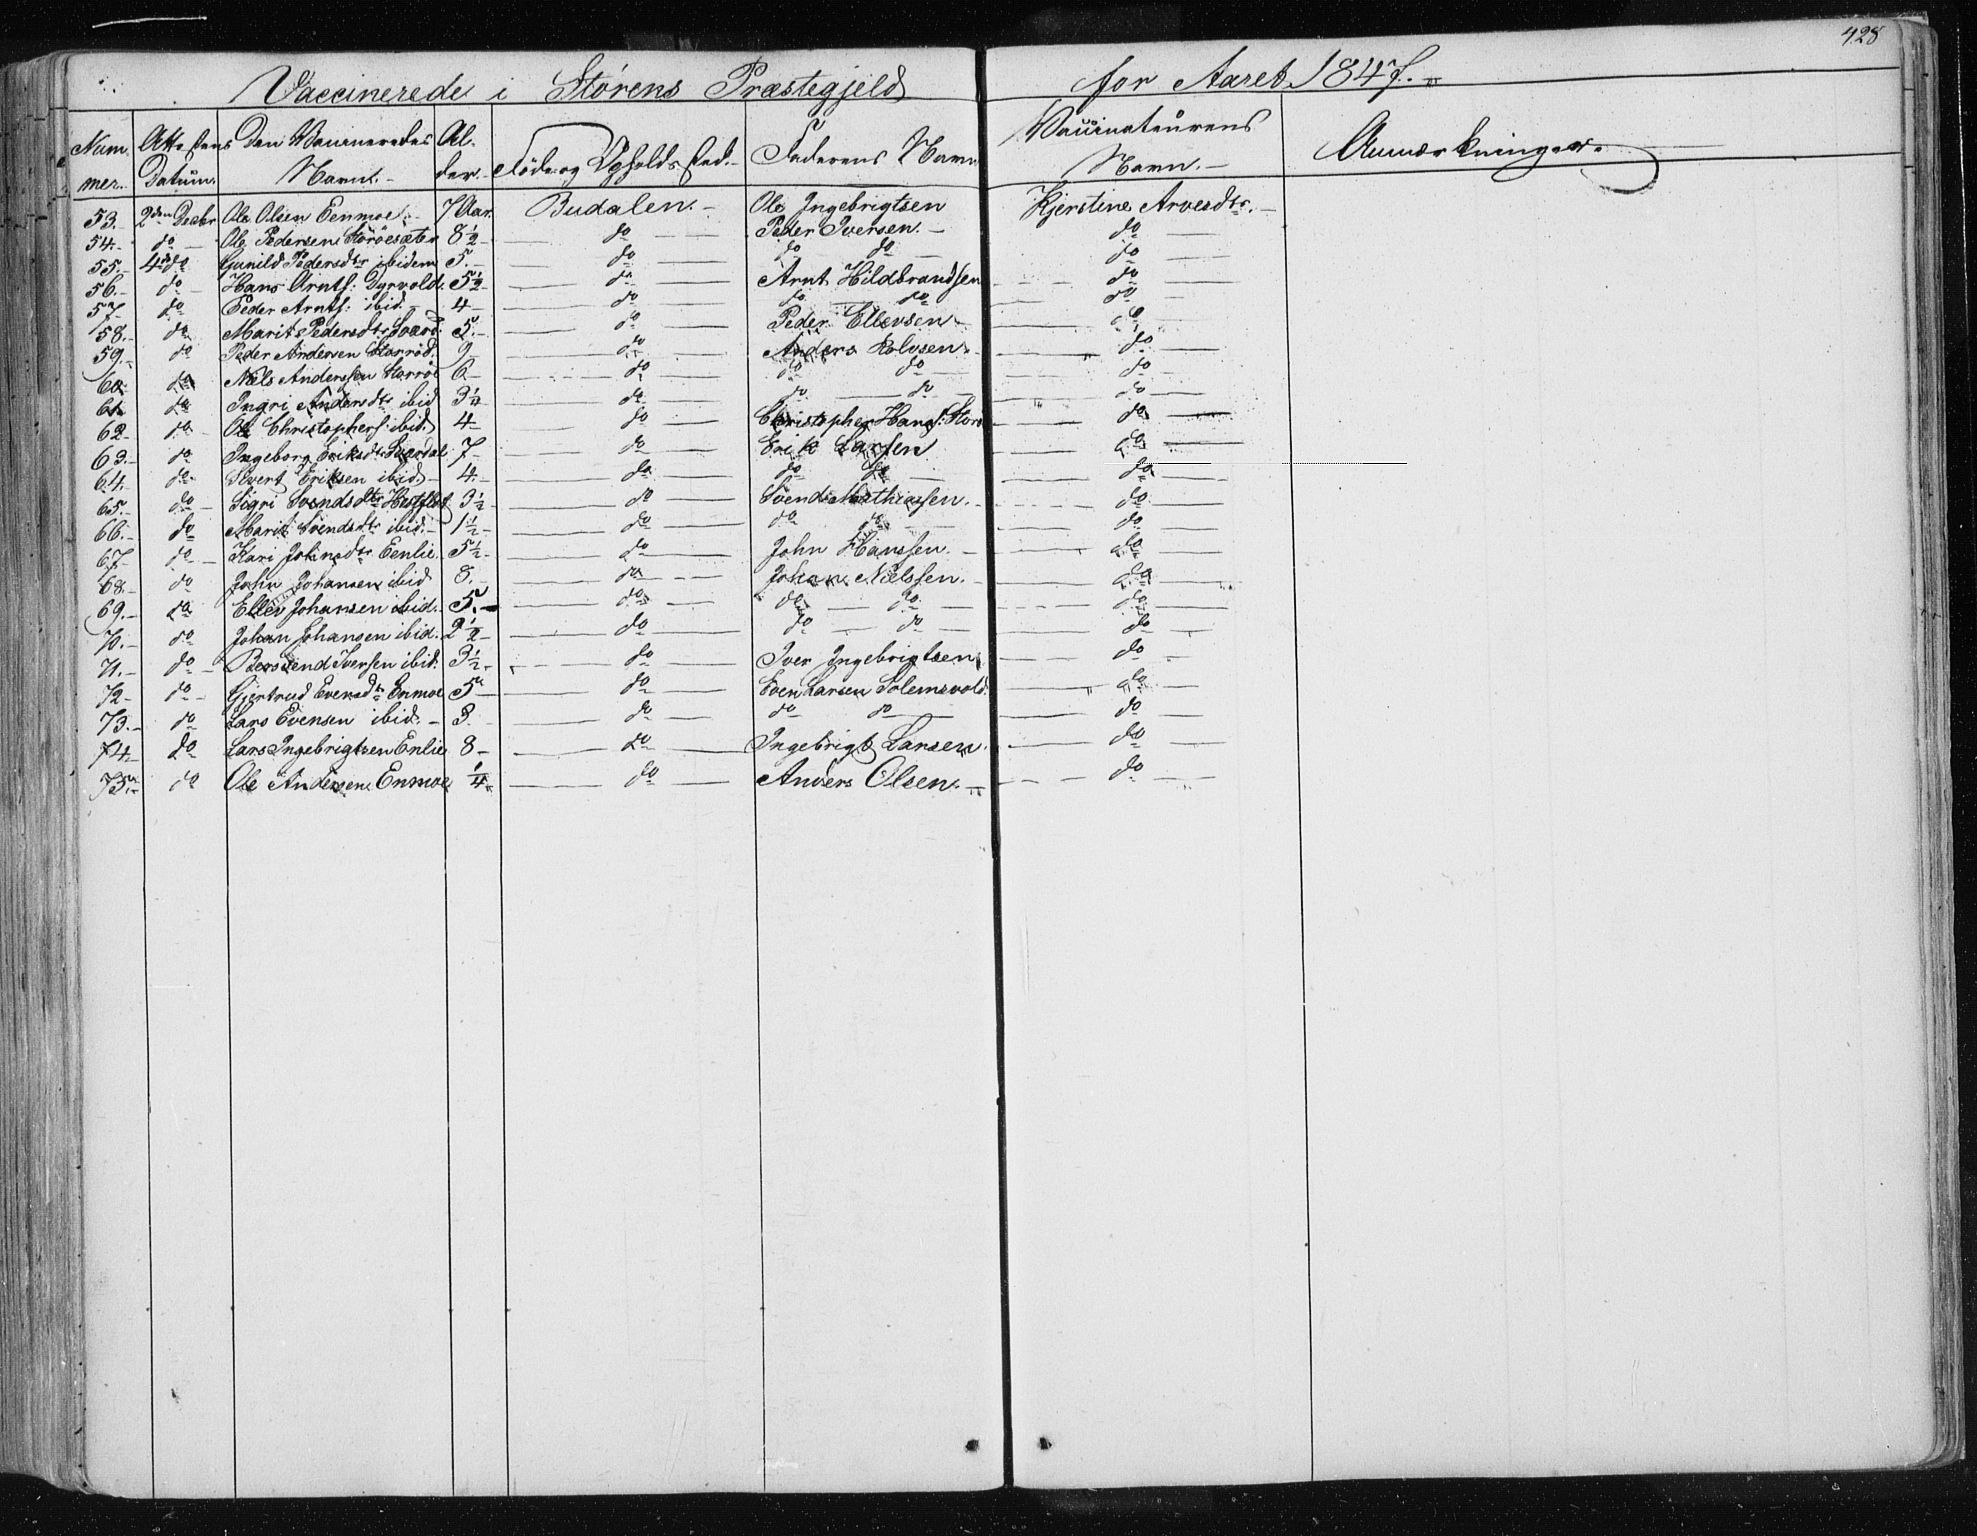 428
Vaccinerede i Störens Præstegjeld for Aaret 1847.
Nummer. Attestens Datum. Den Vaccineredes Navn. Alder. Föde og Opholdssted. Faderens Navn Vaccinateurens Navn. Anmærkninger.
53. 2den Decbr Ole Olsen Eenmoe 7 Aar. Budalen. Ole Ingebrigtsen Kjerstine Arvesdtr.
54. do Ole Pedersen Storöesæter 8½ do Peder Iversen. do
55. 4de do Gunild Pedersdtr ibidem 5. do do do do
56. do Hans Arntf: Dyrvold. 5½ do Arnt Hildbrandsen do
57. do Peder Arntf: ibid. 4 do do do do
58. do Marit Pedersdtr 5. do Peder Ellevsen do
59. do Peder Andersen Storröe. 9 do Anders Rolvsen do
60. do Niels Anderssen Storröe 6 do do do do
61. do Ingri Andersdtr ibid 3½ do do do do
62. do Ole Christophers: ibid. 4 do Christopher Hansf: Storr do
63. do Ingeborg Eriksdtr 7 do Erik Larsen do
64. do Sivert Eriksen ibid 4. do do do do
65. do Sigri Svendsdtr 3½ do Svend Mathiassen. do
66. do Marit Svendsdtr ibid. 1½ do do do do
67 do Kari Johnsdtr Eenlie. 5½ do John Hanssen. do
68. do John Johansen ibid 8. do Johan Nielssen. do
69. do Ellev Johansen ibid. 5. do do do do
70. do Johan Johansen ibid. 2½ do do do do
71. do Iversen ibid. 3½ do Iver Ingebrigtsen do
72 do Gjertrud Evensdtr Enmoe 5 do Even Larsen Solemsvold. do
73. do Lars Evensen ibid. 3. do do do do
74 do Lars Ingebrigtsen Enlie 8 do Ingebrigt Larsen. do
75. do Ole Andersen Enmoe ¼ do Anders Olsen. do